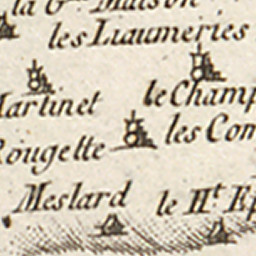 la Gde Maison
les Liaumeries
Martinet
le Champ
Rougette
les Com
Meslard
le Ht Ep